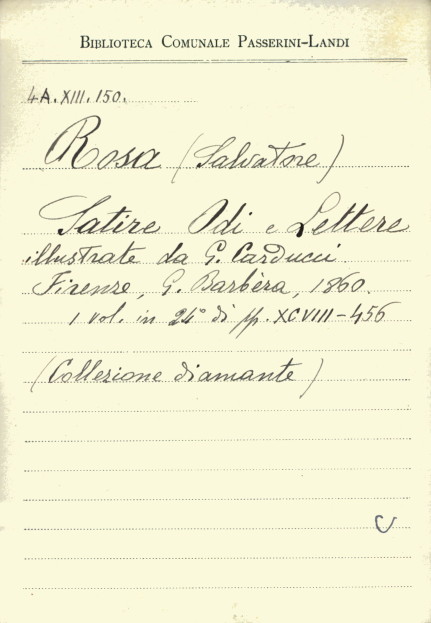 BIBLIOTECA COMUNALE PASSERINI-LANDI
4A.XIII.150.
Rosa (Salvatore)
Satire Odi e Lettere
illustrate da G. Carducci.
Firenze, G. Barbèra, 1860.
1 vol. in 24° di pp. XCVIII-456
(Collezione diamante)
C